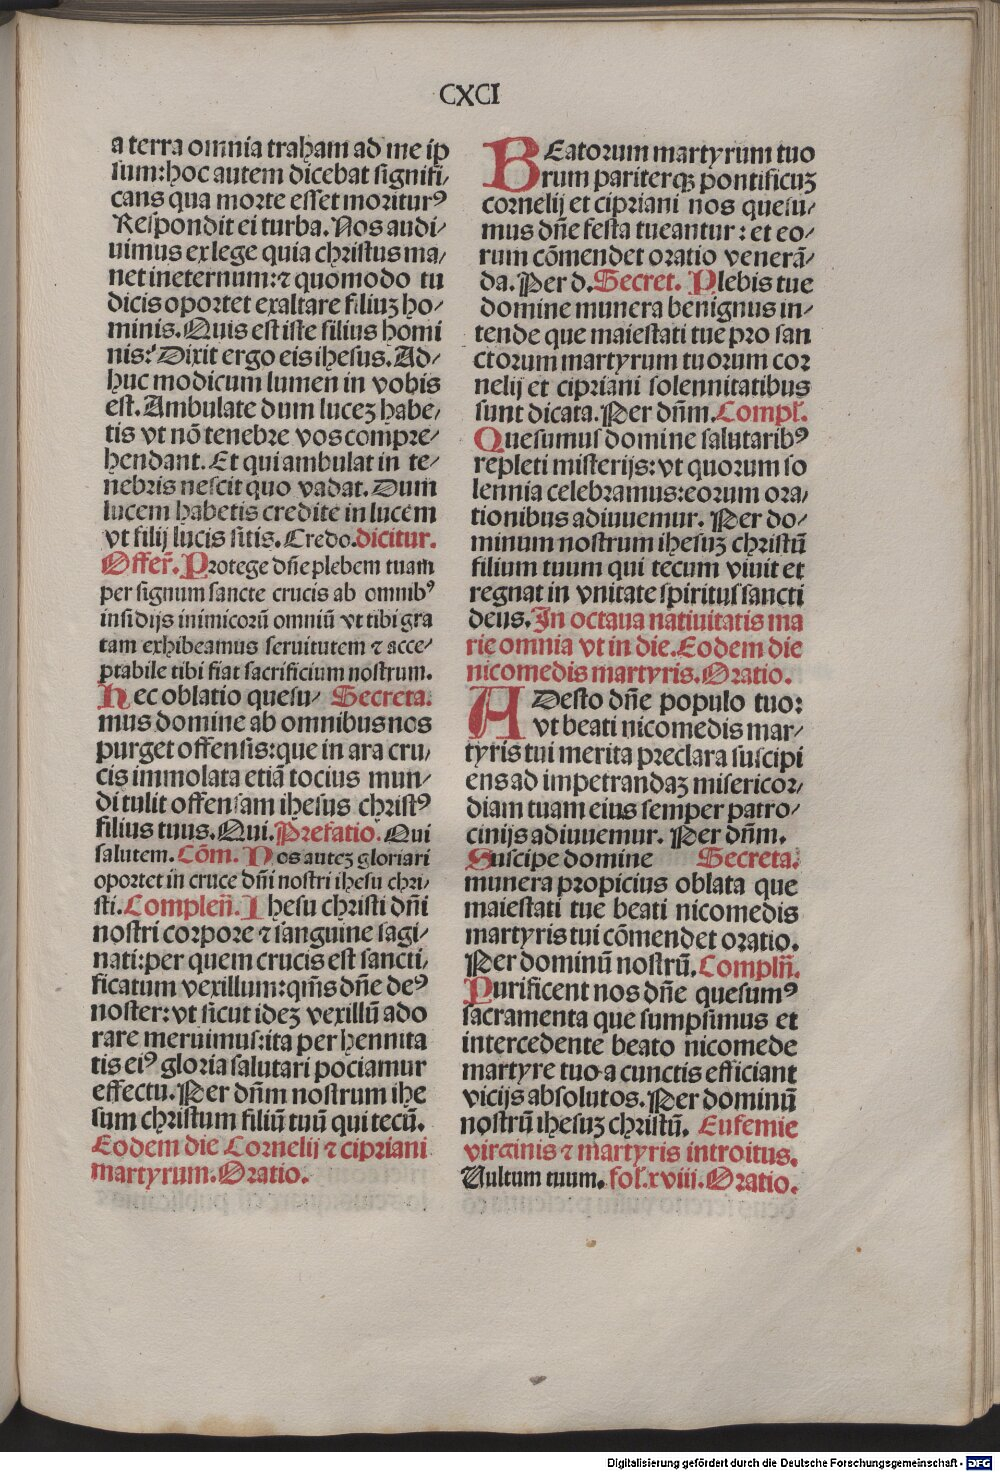 CXCI
a terra omnia traham ad me ip
sum:hoc autem dicebat signifi⸗
cans qua morte esset moriturꝰ
Respondit ei turba. Nos audi⸗
uimus ex lege quia christus ma⸗
net ineternum:⁊ quomodo tu
dicis oportet exaltare filiuȝ ho⸗
minis. Quis est iste filius homi
nis? Dixit ergo eis ihesus. Ad⸗
huc modicum lumen in vobis
est. Ambulate dum luceȝ habe⸗
tis vt nō tenebre vos compre⸗
hendant. Et qui ambulat in te⸗
nebris nescit quo vadat. Dum
lucem habetis credite in lucem
vt filij lucis sitis. Credo. dicitur.
Offer̄. Protege dn̄e plebem tuam
per signum sancte crucis ab omnibꝰ
insidijs inimicorū omniū vt tibi gra
tam exhibeamus seruitutem ⁊ acce⸗
ptabile tibi fiat sacrificium nostrum.
Hec oblatio quesu⸗ Secreta.
mus domine ab omnibus nos
purget offensis:que in ara cru⸗
cis immolata etiā tocius mun⸗
di tulit offensam ihesus christꝰ
filius tuus. Qui. Prefatio. Qui
salutem. Cōm. Nos auteȝ gloriari
oportet in cruce dn̄i nostri ihesu chri⸗
sti. Complen̄. Ihesu christi dn̄i
nostri corpore ⁊ sanguine sagi⸗
nati:per quem crucis est sancti⸗
ficatum vexillum:qm̄s dn̄e deꝰ
noster:vt sicut ideȝ vexillū ado
rare meruimus:ita per hennita
tis eiꝰ gloria salutari pociamur
effectu. Per dn̄m nostrum ihe
sum christum filiū tuū qui tecū.
Eodem die Cornelij ⁊ cipriani
martyrum. Oratio.
BEatorum martyrum tuo
rum pariterqꝫ pontificuȝ
cornelij et cipriani nos quesu⸗
mus dn̄e festa tueantur: et eo⸗
rum cōmendet oratio venerā⸗
da. Per d. Secret. Plebis tue
domine munera benignus in⸗
tende que maiestati tue pro san
ctorum martyrum tuorum cor
nelij et cipriani solennitatibus
sunt dicata. Per dn̄m. Compl̄.
Quesumus domine salutaribꝰ
repleti misterijs:vt quorum so
lennia celebramus:eorum ora⸗
tionibus adiuuemur. Per do⸗
minum nostrum ihesuȝ christū
filium tuum qui tecum viuit et
regnat in vnitate spiritus sancti
deus. In octaua natiuitatis ma
rie omnia vt in die. Eodem die
nicomedis martyris. Oratio.
ADesto dn̄e populo tuo:
vt beati nicomedis mar⸗
tyris tui merita preclara suscipi
ens ad impetrandaȝ misericor⸗
diam tuam eius semper patro⸗
cinijs adiuuemur. Per dn̄m.
Suscipe domine Secreta.
munera propicius oblata que
maiestati tue beati nicomedis
martyris tui cōmendet oratio.
Per dominū nostrū. Compln̄.
Purificent nos dn̄e quesumꝰ
sacramenta que sumpsimus et
intercedente beato nicomede
martyre tuo a cunctis efficiant
vicijs absolutos. Per dominū
nostrū ihesuȝ christū. Eufemie
virginis ⁊ martyris introitus.
Vultum tuum. fol. xviii. Oratio.
Digitalisierung gefördert durch die Deutsche Forschungsgemeinschaft - DFG